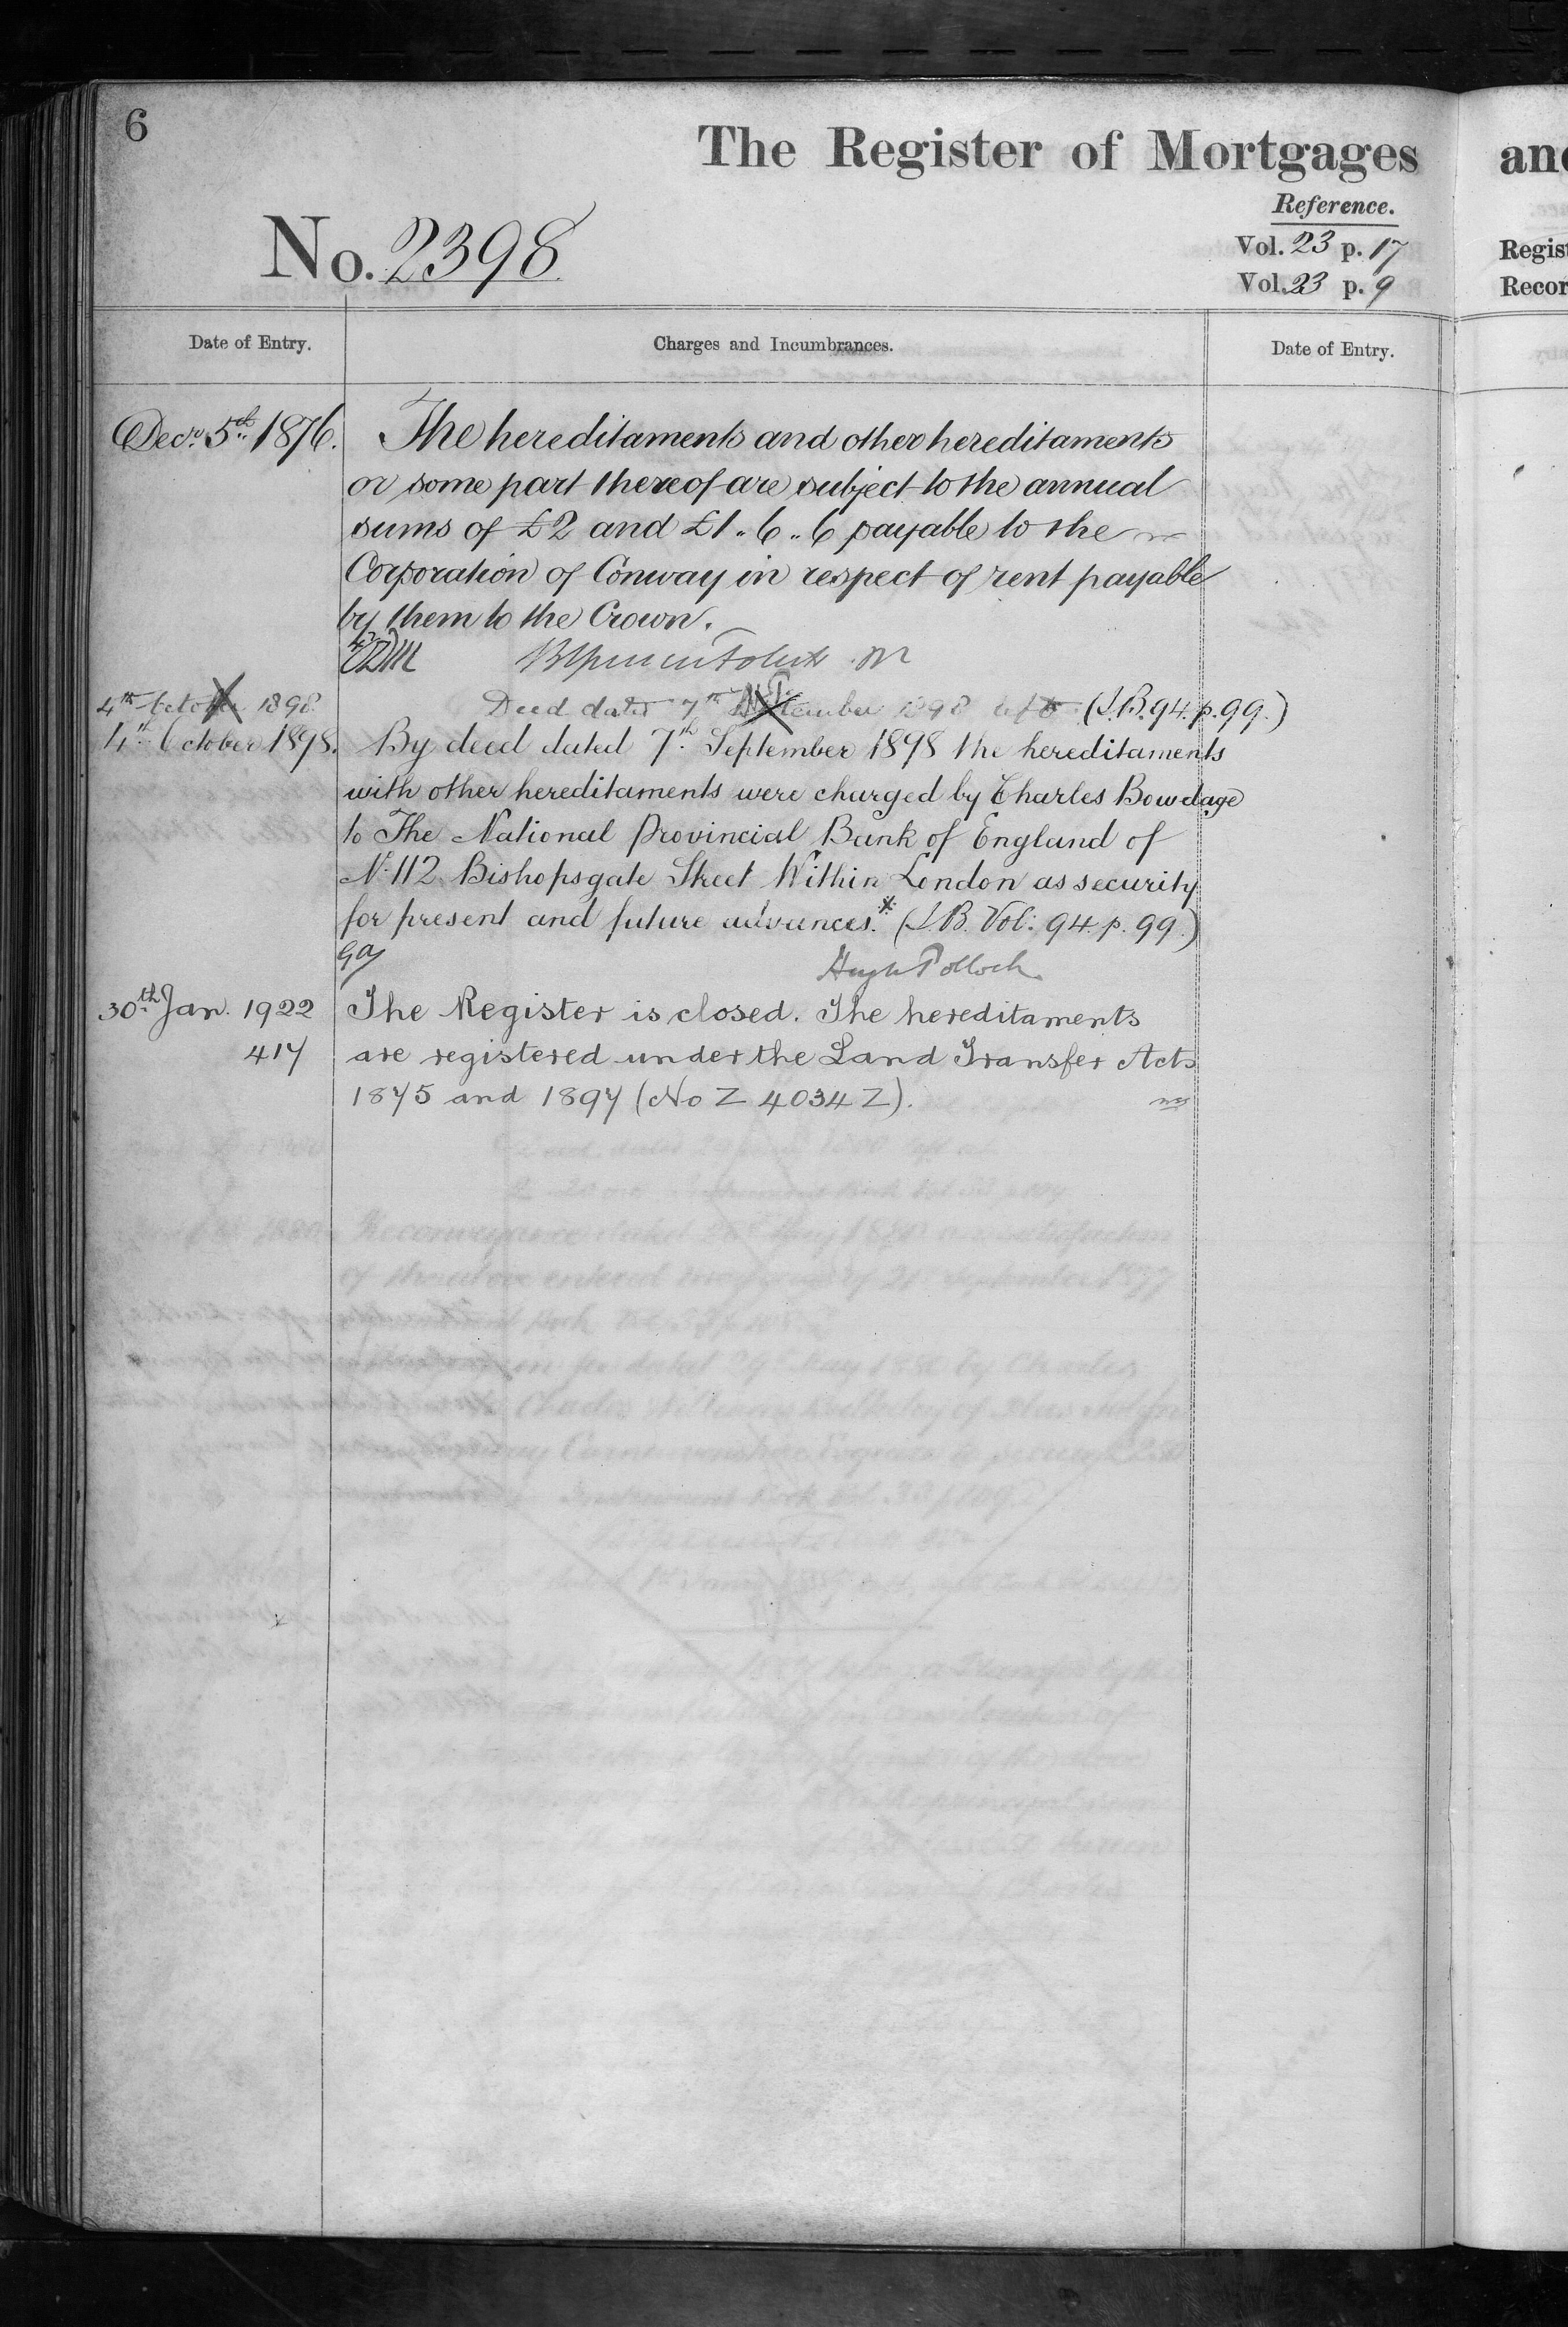 6
The Register of Mortgages
and
Reference.
No. 2398
Vol. 23 p. 17
Vol. 23 p. 9
Date of Entry.
Charges and Incumbrances.
Date of Entry.
Decr. 5th 1876.
The hereditaments and other hereditaments
or some part thereof are subject to the annual
sums of £2 and £1 „ 6 „ 6 payable to the
Corporation of Conway in respect of rent payable
by them to the Crown.
4th October 1898.
Deed dated 7th September 1898 left (I.B. 94. p. 99.)
4th October 1898.
By deed dated 7th September 1898 the hereditaments
with other hereditaments were charged by Charles Bowdage
to The National Provincial Bank of England of
No. 112 Bishopsgate Street Within London as security
for present and future advances.* (I.B. Vol: 94. p. 99.)
Hugh Pollock
30th Jan. 1922
The Register is closed. The hereditaments
417
are registered under the Land Transfer Acts
1875 and 1897 (No Z 4034 Z).